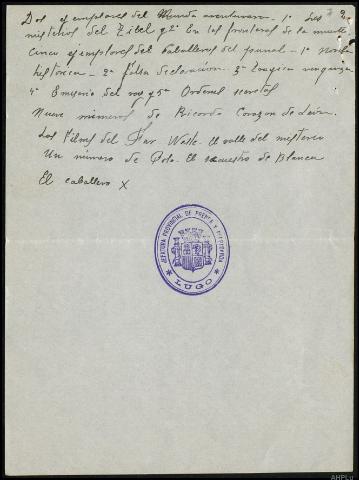 2
Dos ejemplares del Mundo aventurero - 1º Los
misterios del Zitel y 2º En las fronteras de la muerte
Cinco ejemplares del Caballero del puñal - 1º Noche
historica - 2º falsa declaración. 3º Tragica venganza
4º Emisario del rey y 5º Ordenes secretas
Nueve números de Ricardo Corazon de León.
Los films del Far West. El valle del misterio
Un número de Polo. El secuestro de Blanca
El caballero X
JEFATURA PROVINCIAL DE PRENSA Y PROPAGANDA
* LUGO *
AHPLu